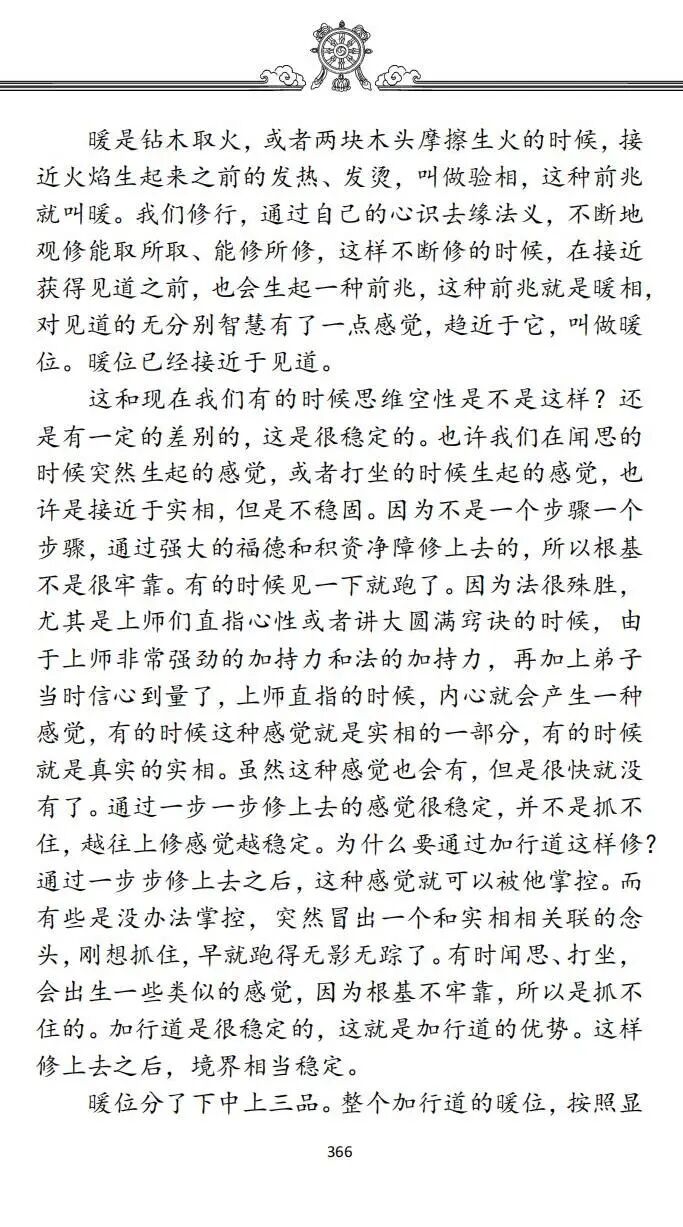 暖是钻木取火，或者两块木头摩擦生火的时候，接
近火焰生起来之前的发热、发烫，叫做验相，这种前兆
就叫暖。我们修行，通过自己的心识去缘法义，不断地
观修能取所取、能修所修，这样不断修的时候，在接近
获得见道之前，也会生起一种前兆，这种前兆就是暖相，
对见道的无分别智慧有了一点感觉，趋近于它，叫做暖
位。暖位已经接近于见道。
这和现在我们有的时候思维空性是不是这样？还
是有一定的差别的，这是很稳定的。也许我们在闻思的
时候突然生起的感觉，或者打坐的时候生起的感觉，也
许是接近于实相，但是不稳固。因为不是一个步骤一个
步骤，通过强大的福德和积资净障修上去的，所以根基
不是很牢靠。有的时候见一下就跑了。因为法很殊胜，
尤其是上师们直指心性或者讲大圆满窍诀的时候，由
于上师非常强劲的加持力和法的加持力，再加上弟子
当时信心到量了，上师直指的时候，内心就会产生一种
感觉，有的时候这种感觉就是实相的一部分，有的时候
就是真实的实相。虽然这种感觉也会有，但是很快就没
有了。通过一步一步修上去的感觉很稳定，并不是抓不
住，越往上修感觉越稳定。为什么要通过加行道这样修？
通过一步步修上去之后，这种感觉就可以被他掌控。而
有些是没办法掌控，突然冒出一个和实相相关联的念
头，刚想抓住，早就跑得无影无踪了。有时闻思、打坐，
会出生一些类似的感觉，因为根基不牢靠，所以是抓不
住的。加行道是很稳定的，这就是加行道的优势。这样
修上去之后，境界相当稳定。
暖位分了下中上三品。整个加行道的暖位，按照显
366